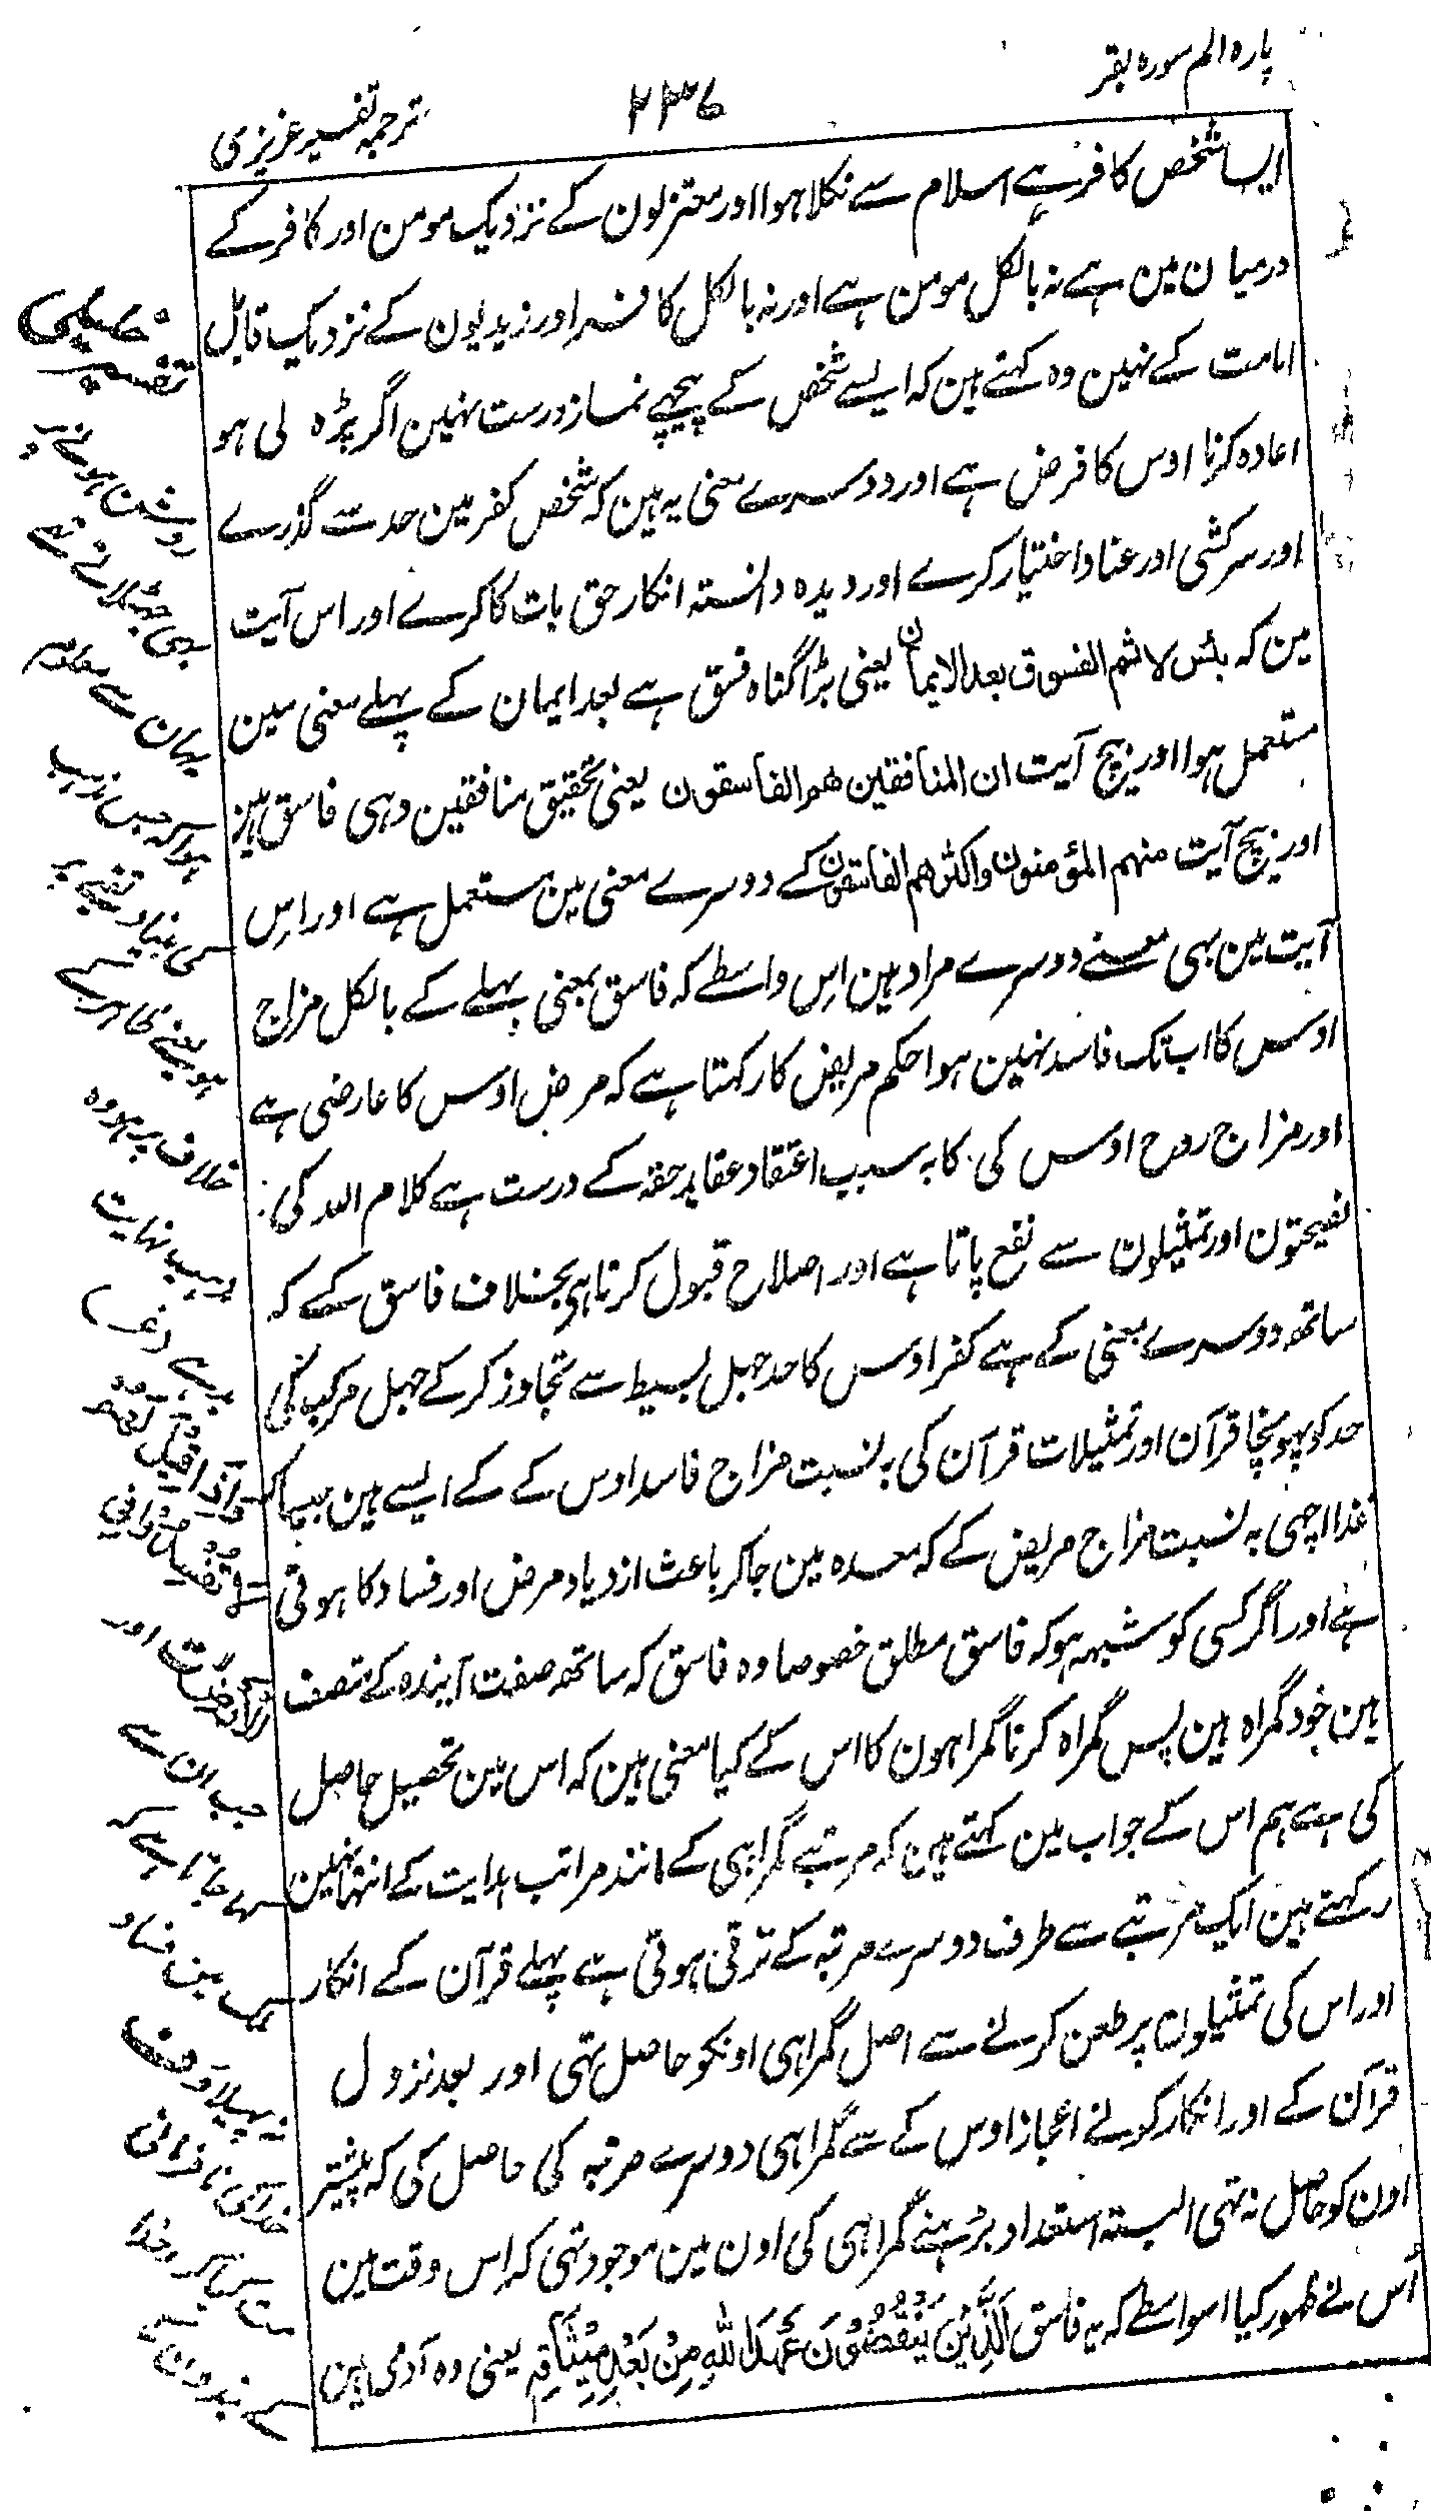 پارہ الم سورہ بقر
۲۳۶
ترجمہ تفسیر عزیزی
ایسا شخص کافر ہے اسلام سے نکلا ہوا اور معتزلون کے نزدیک مومن اور کافر کے
درمیان مین ہے نہ بالکل مومن ہے اور نہ بالکل کافر اور زیدیون کے نزدیک قابل
امامت کے نہین وہ کہتے ہین کہ ایسے شخص کے پیچھے نماز درست نہین اگر پڑہ لی ہو
اعادہ کرنا اوس کا فرض ہے اور دوسرے معنی یہ ہین کہ شخص کفر مین حد سے گذرے
اور سرکشی اور عناد اختیار کرے اور دیدہ دانستہ انکار حق بات کا کرے اور اس آیت
مین کہ بئس لاثم الفسوق بعد الایمان یعنی بڑا گناہ فسق ہے بعد ایمان کے پہلے معنی مین
مستعمل ہوا اور بیچ آیت ان المنافقین هم الفاسقون یعنی تحقیق منافقین وہی فاسق ہین
اور بیچ آیت منهم المؤمنون واکثرهم الفاسقون کے دوسرے معنی مین مستعمل ہے اور اس
آیت مین بہی معنے دوسرے مراد ہین اس واسطے کہ فاسق بمعنی پہلے کے بالکل مزاج
اوس کا ابتک فاسد نہین ہوا حکم مریض کا رکہتا ہے کہ مرض اوس کا عارضی ہے
اور مزاج روح اوس کی کا بہ سبب اعتقاد عقاید حقہ کے درست ہے کلام اللہ کی
نصیحتون اور تمثیلون سے نفع پاتا ہے اور اصلاح قبول کرتا ہی بخلاف فاسق کے کہ
ساتھ دوسرے معنی کے ہے کفر اوس کا حد جہل بسیط سے تجاوز کر کے جہل مرکب کی
حد کو پہونچا قرآن اور تمثیلات قرآن کی بہ نسبت مزاج فاسد اوس کے کے ایسے ہین جیسا کہ
غذا اچہی بہ نسبت مزاج مریض کے کہ معدہ مین جا کر باعث ازدیاد مرض اور فساد کا ہوتی
ہے اور اگر کسی کو شبہہ ہو کہ فاسق مطلق خصوصا وہ فاسق کہ ساتھ صفت آیندہ کے متصف
ہین خود گمراہ ہین پس گمراہ کرنا گمراہون کا اس کے کیا معنی ہین کہ اس مین تحصیل حاصل
کی ہے ہم اس کے جواب مین کہتے ہین کہ مرتبے گمراہی کے مانند مراتب ہدایت کے انتہا نہین
رکہتے ہین ایک مرتبے سے طرف دوسرے مرتبہ کے ترقی ہوتی ہے پہلے قرآن کے انکار
اور اس کی تمثیلون پر طعن کرنے سے اصل گمراہی اونکو حاصل تہی اور بعد نزول
قرآن کے اور انکار کرنے اعجاز اوس کے سے گمراہی دوسرے مرتبہ کی حاصل کی کہ پیشتر
اون کو حاصل نہ تہی البتہ استعداد بڑہنے گمراہی کی اون مین موجود تہی کہ اس وقت مین
اُس نے ظہور کیا اسواسطے کہ یہ فاسق اَلَّذِيْنَ يَنْقُضُوْنَ عَهْدَ اللّٰهِ مِنْ بَعْدِ مِيْثَاقِهٖ یعنی وہ آدمی ہین
تفسیر
روشن ہونے پر
بہی جہٹلاتے تہے
یہان سے معلوم
ہوا کہ جس مذہب
کی بنیاد
خلاف پر ہو وہ
مذہب نہایت
وَاِذَا قِیْلَ لَهُمْ
لَا تُفْسِدُوْا فِی
الْاَرْضِ اور
جب ان سے
کہا جاتا ہے کہ
زمین مین فساد
نہ پہیلاؤ
خدا کی نافرمانی
مت کرو خدا
کے بندون